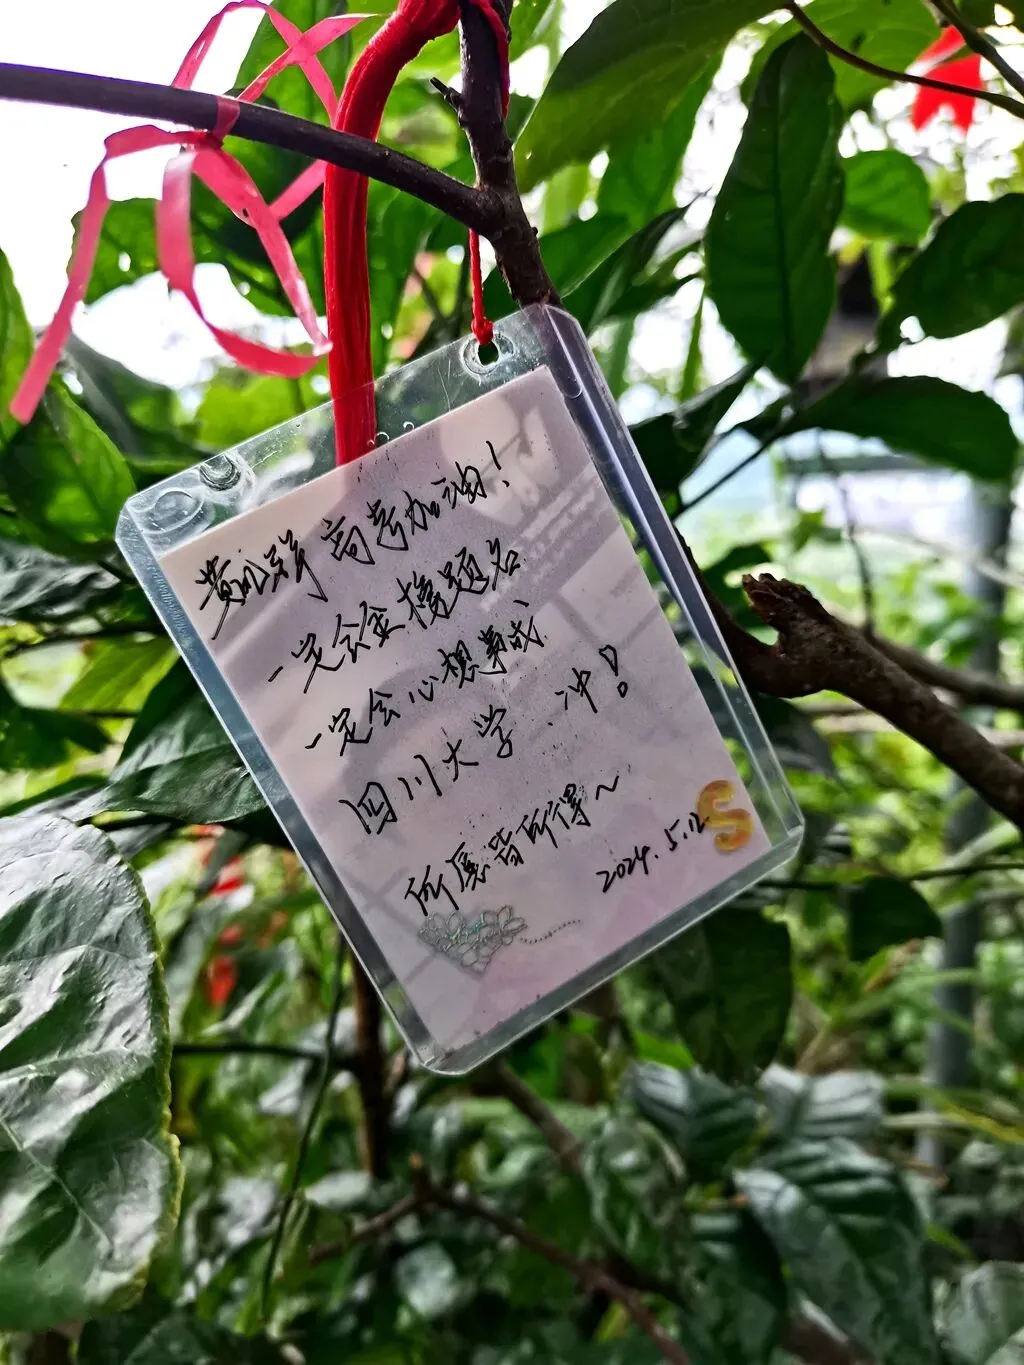 高考加油!
一定会金榜题名
一定会心想事成
四川大学.冲!
所愿皆所得~
2024.5.12
S